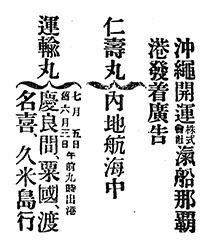 沖繩開運株式會社滊船那覇
港發着廣告
仁壽丸 內地航海中
運輸丸 七月五日午前九時出港
舊六月三日
慶良間、粟國、渡
名喜、久米島行